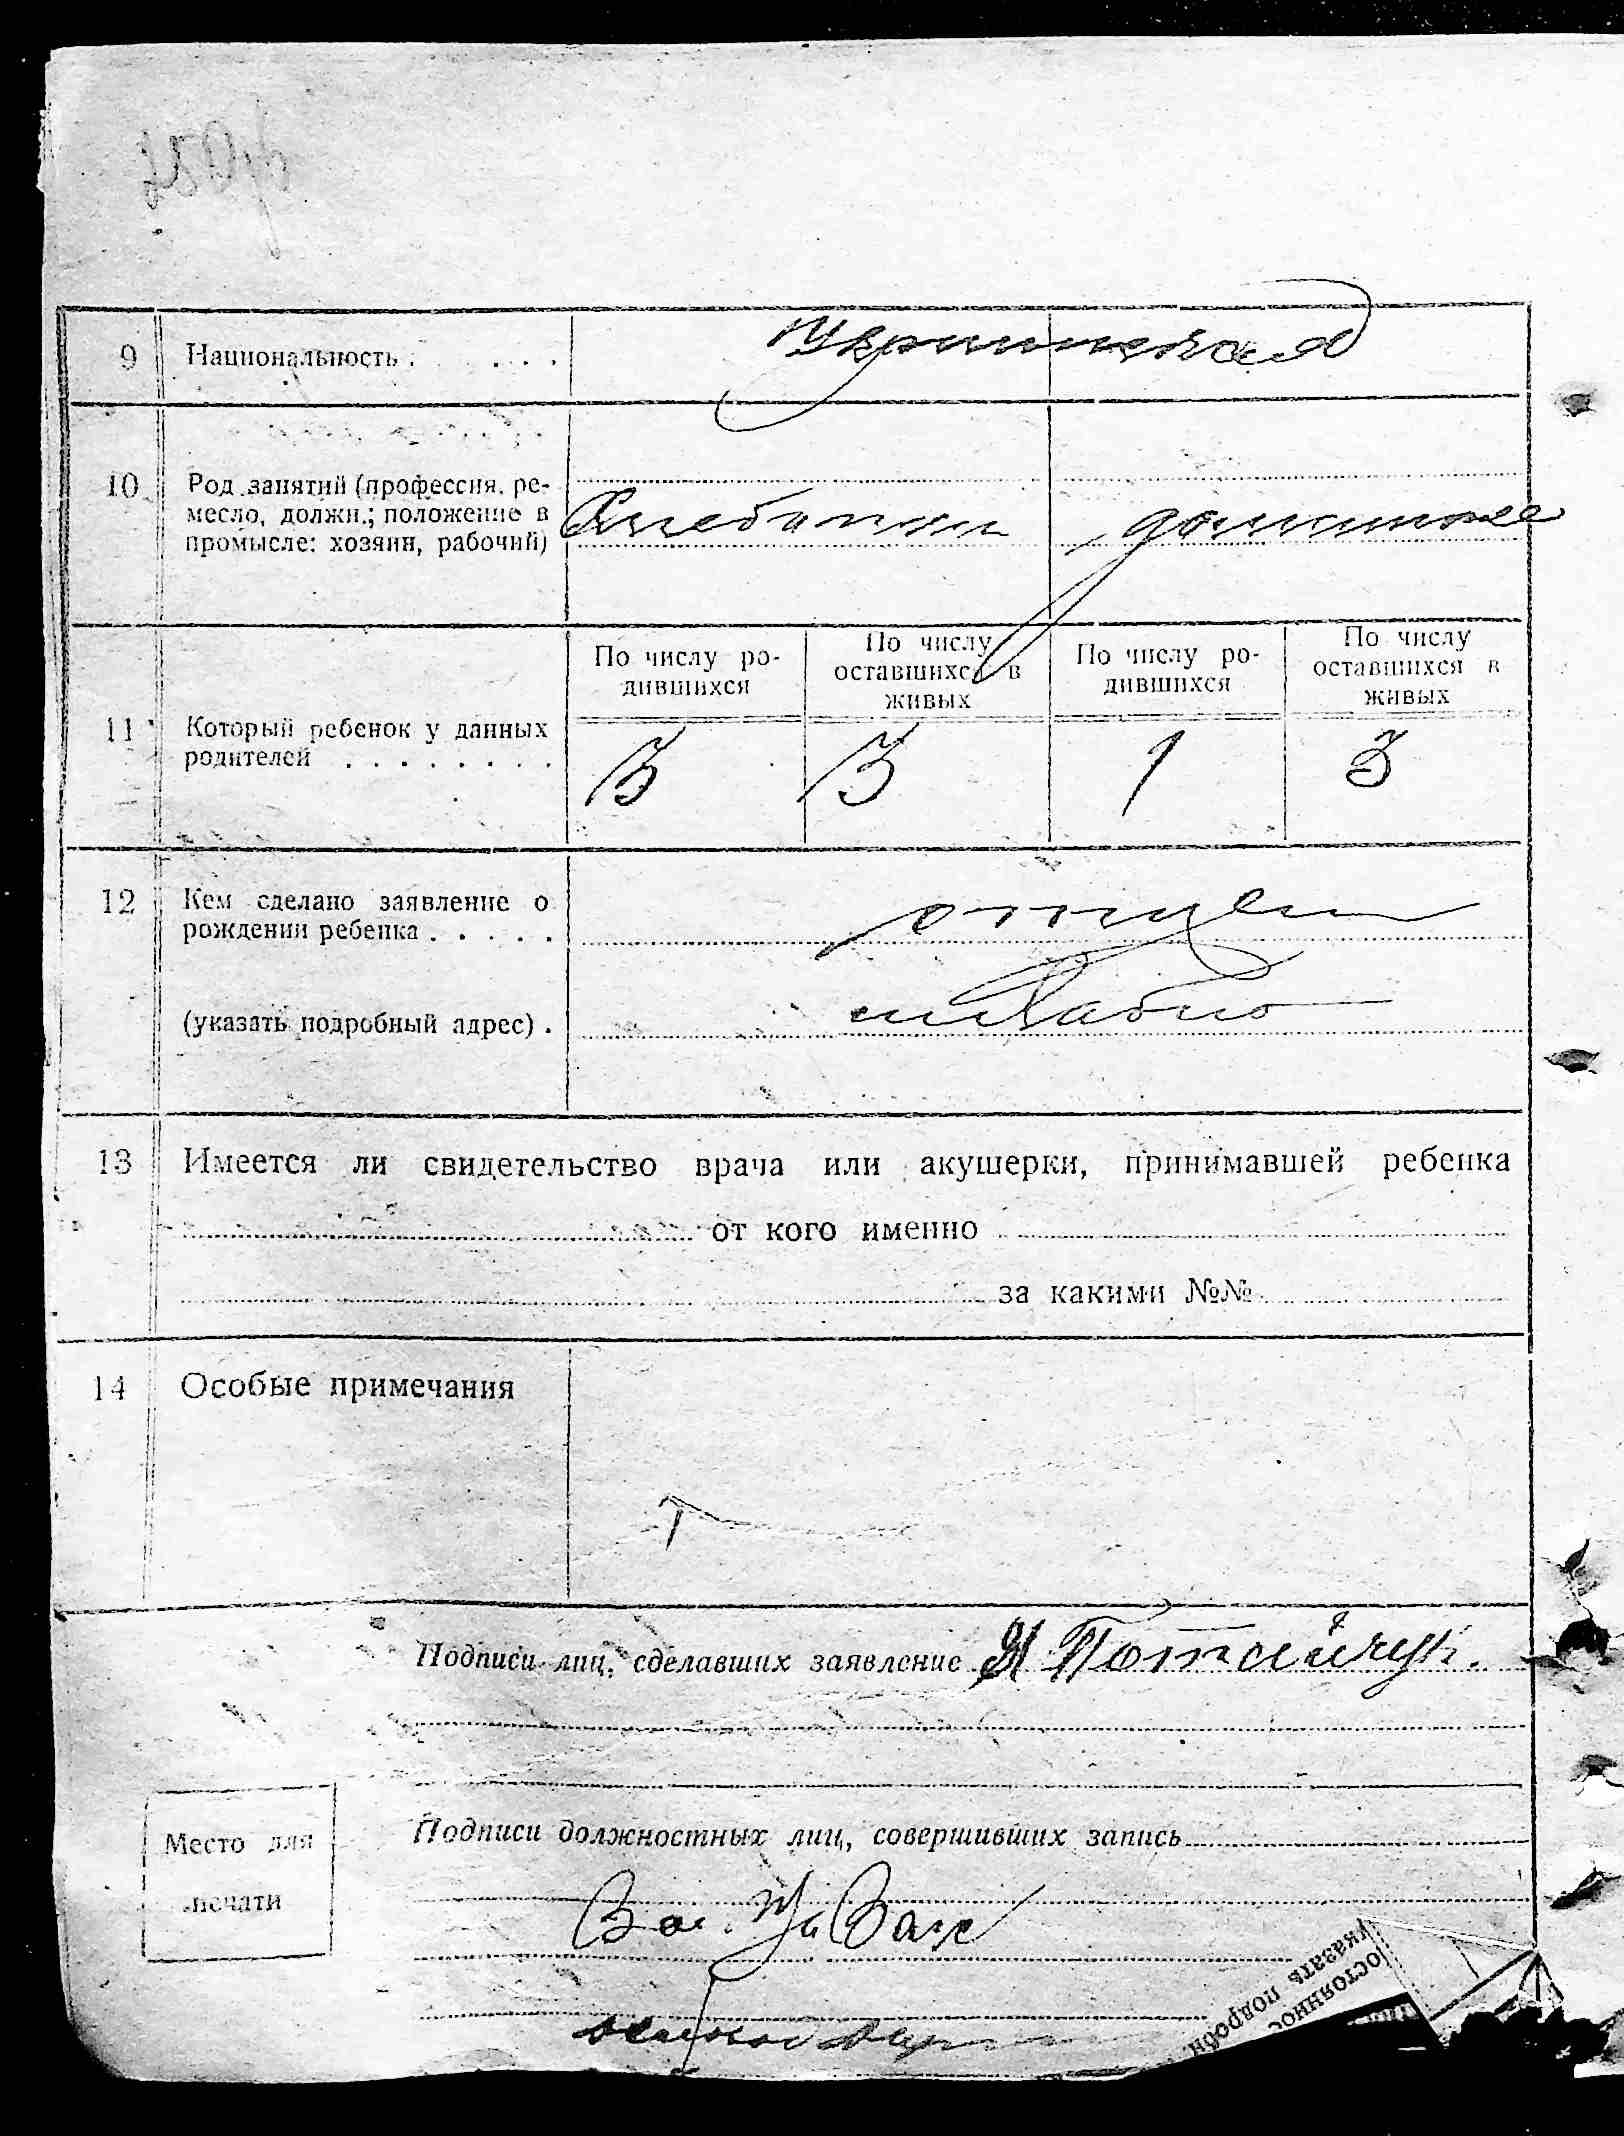 9 Национальность . . . . .
Украинская
10 Род занятий (профессия, ре-
месло, должн.; положение в
промысле: хозяин, рабочий)
Хлебопаш домашнее
По числу ро-
дившихся
По числу
оставшихся в
живых
По числу ро-
дившихся
По числу
оставшихся в
живых
11 Который ребенок у данных
родителей . . . . . . . .
3 3 1 3
12 Кем сделано заявление о
рождении ребенка . . . . .
отцем
(указать подробный адрес) .
13 Имеется ли свидетельство врача или акушерки, принимавшей ребенка
от кого именно
за какими №№
14 Особые примечания
Подписи лиц, сделавших заявление
Подписи должностных лиц, совершивших запись
Место для
печати
указать подробн
постоянное